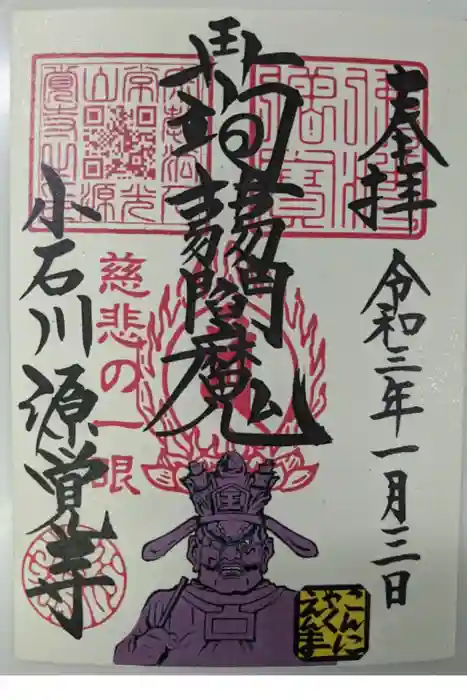 奉拝
令和三年一月三日
蒟蒻閻魔
小石川源覚寺
慈悲の一眼
こんにゃくえんま